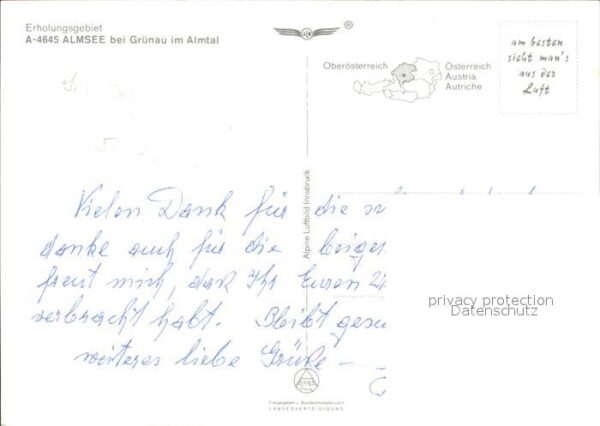 Erholungsgebiet
A-4645 ALMSEE bei Grünau im Almtal
®
Oberösterreich
Österreich
Austria
Autriche
am besten
sieht man's
aus der
Luft
Alpine Luftbild Innsbruck
Vielen Dank für die
danke auch für die beiges
freut mich, daß Ihr Euren
verbracht habt. Bleibt gesu
weiteres liebe Grüße
privacy protection
Datenschutz
ALPINE
Freigegeben v. Bundesministerium f.
LANDESVERTEIDIGUNG